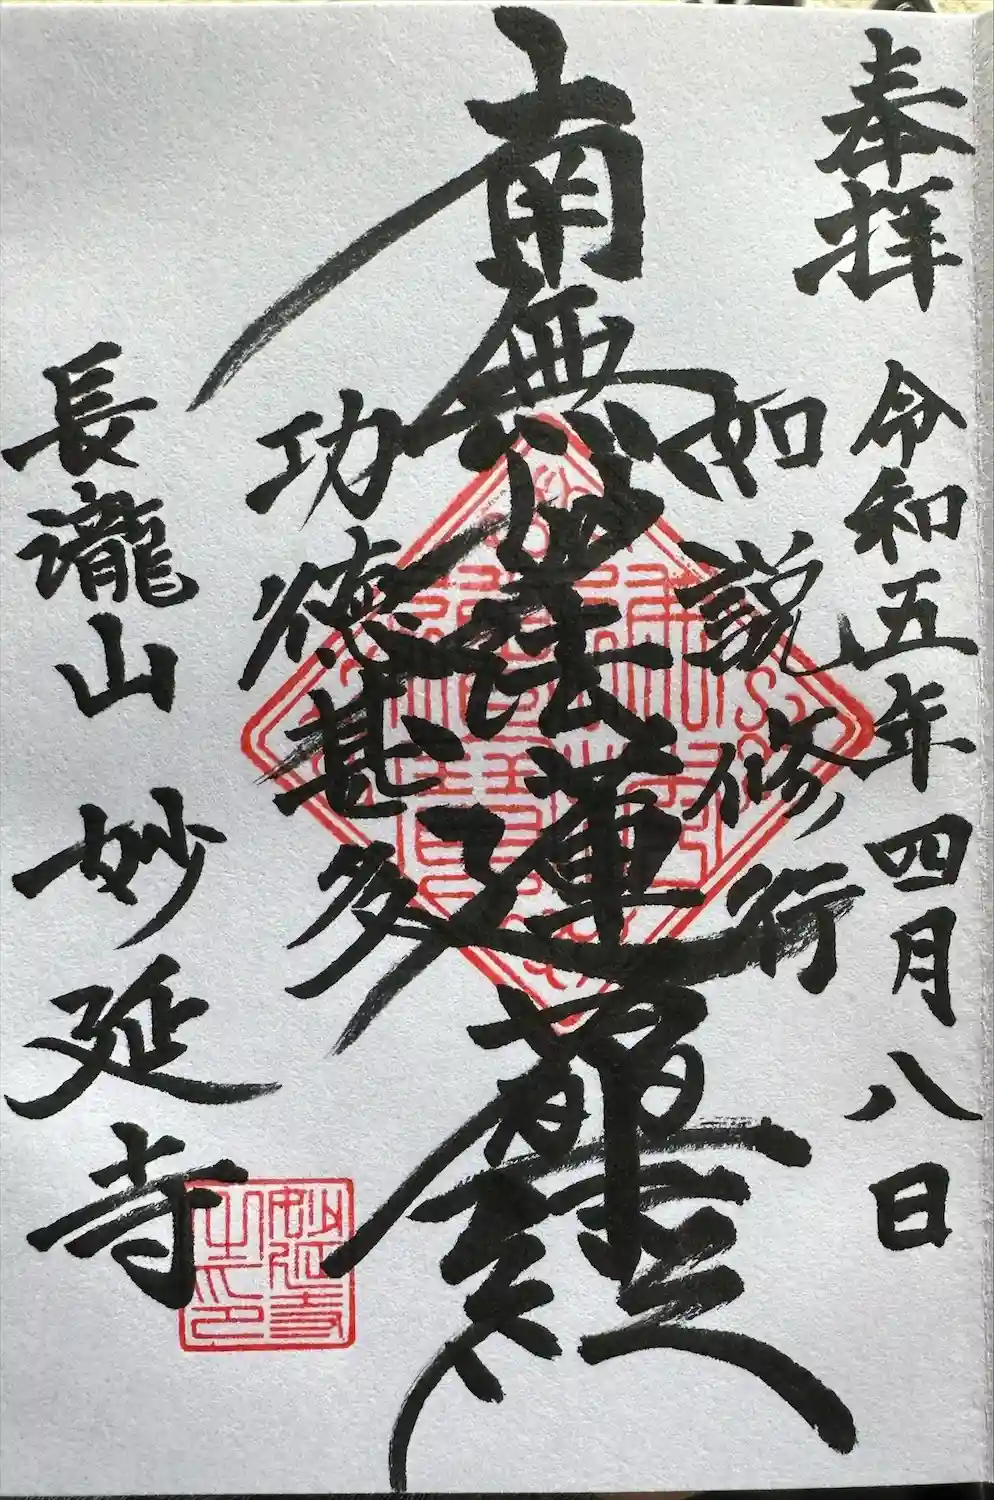 奉拝
令和五年四月八日
如説修行
南無妙法蓮華経
功徳甚多
長瀧山 妙延寺
妙延寺
之印